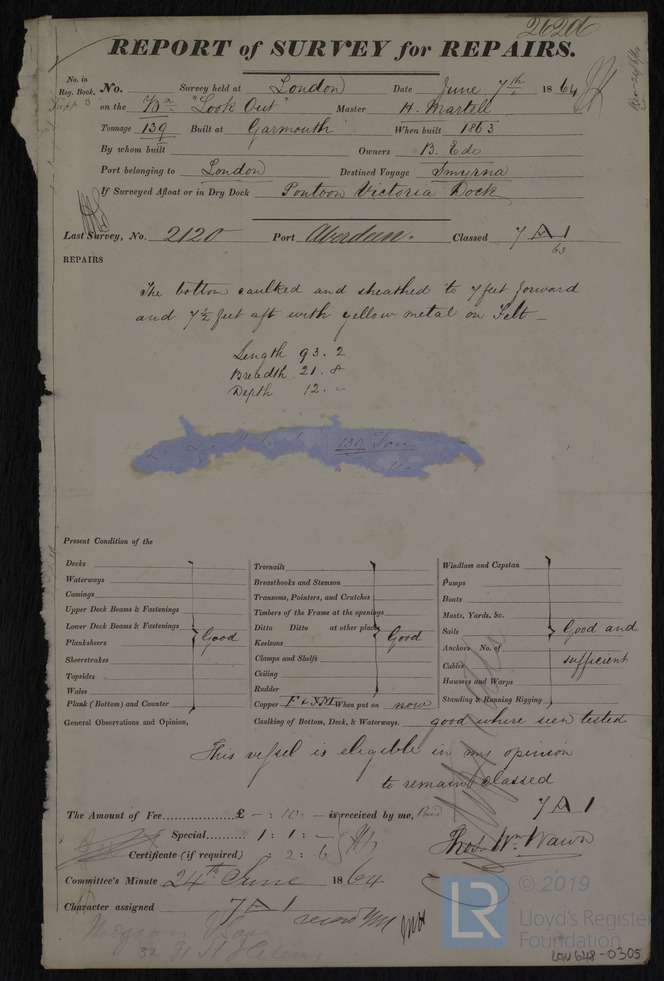 26206
REPORT of SURVEY for REPAIRS.
No. in Reg. Book. No. Survey held at London Date June 7th 1864
Supp 3 on the "Look Out" Master H. Martell
Tonnage 139 Built at Garmouth When built 1863
By whom built Owners B. & Co
Port belonging to London Destined Voyage Smyrna
If Surveyed Afloat or in Dry Dock Pontoon Victoria Dock
Last Survey, No. 2120 Port Aberdeen. Classed 7 A 1
63
REPAIRS
The bottom caulked and sheathed to 7 feet forward
and 7½ feet aft with yellow metal on Felt
Length 93.2
Breadth 21.8
Depth 12. -
139 Ton
Present Condition of the
Decks
Waterways
Comings
Upper Deck Beams & Fastenings
Lower Deck Beams & Fastenings
Planksheers
Sheerstrakes
Topsides
Wales
Plank (Bottom) and Counter
Good
Treenails
Breasthooks and Stemson
Transoms, Pointers, and Crutches
Timbers of the Frame at the openings
Ditto Ditto at other places
Keelsons
Clamps and Shelfs
Ceiling
Rudder
Good
Copper F & YM When put on now
Windlass and Capstan
Pumps
Boats
Masts, Yards, &c.
Sails
Anchors No. of
Cables
Hawsers and Warps
Standing & Running Rigging
Good and
sufficient
General Observations and Opinion, Caulking of Bottom, Deck, & Waterways. good where seen tested
This vessel is eligible in my opinion
to remain classed
7 A 1
The Amount of Fee £ - : 10 : - is received by me,
Special 1 : 1 : -
Certificate (if required) : 2 : 6
Thos. Wm. Wawn
Committee's Minute 24th June 1864
Character assigned 7 A 1
LR
© 2019
Lloyd's Register
Foundation
LON 648-0305